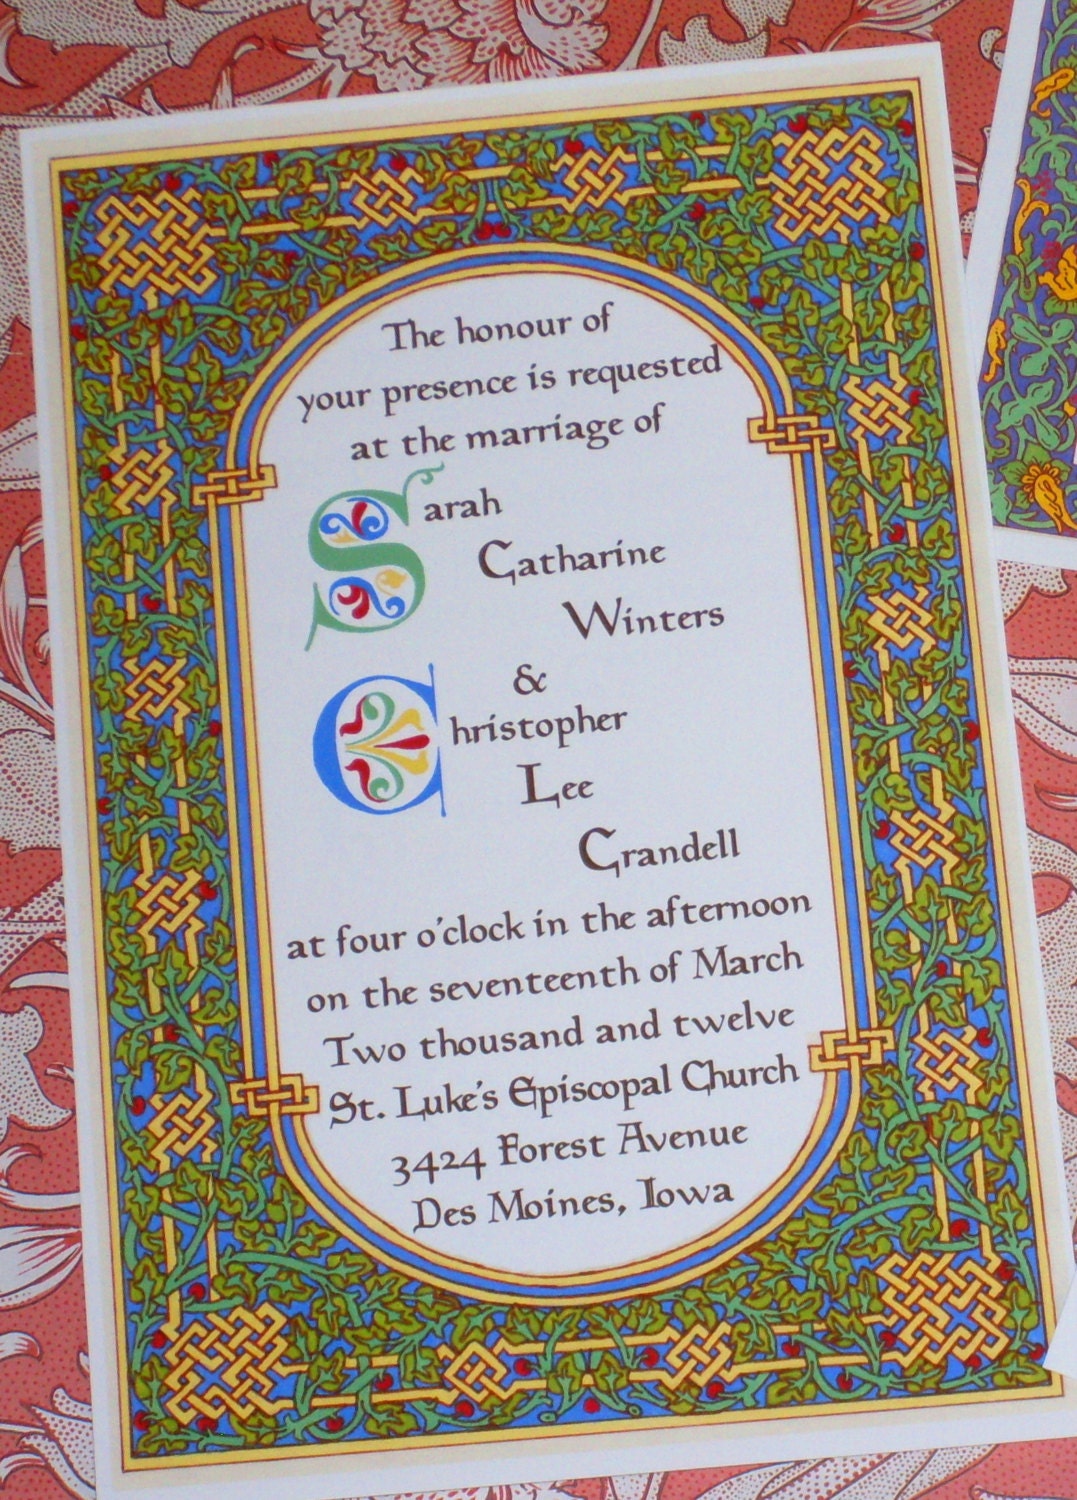 The honour of
your presence is requested
at the marriage of
Sarah
Catharine
Winters
&
Christopher
Lee
Crandell
at four o'clock in the afternoon
on the seventeenth of March
Two thousand and twelve
St. Luke's Episcopal Church
3424 Forest Avenue
Des Moines, Iowa